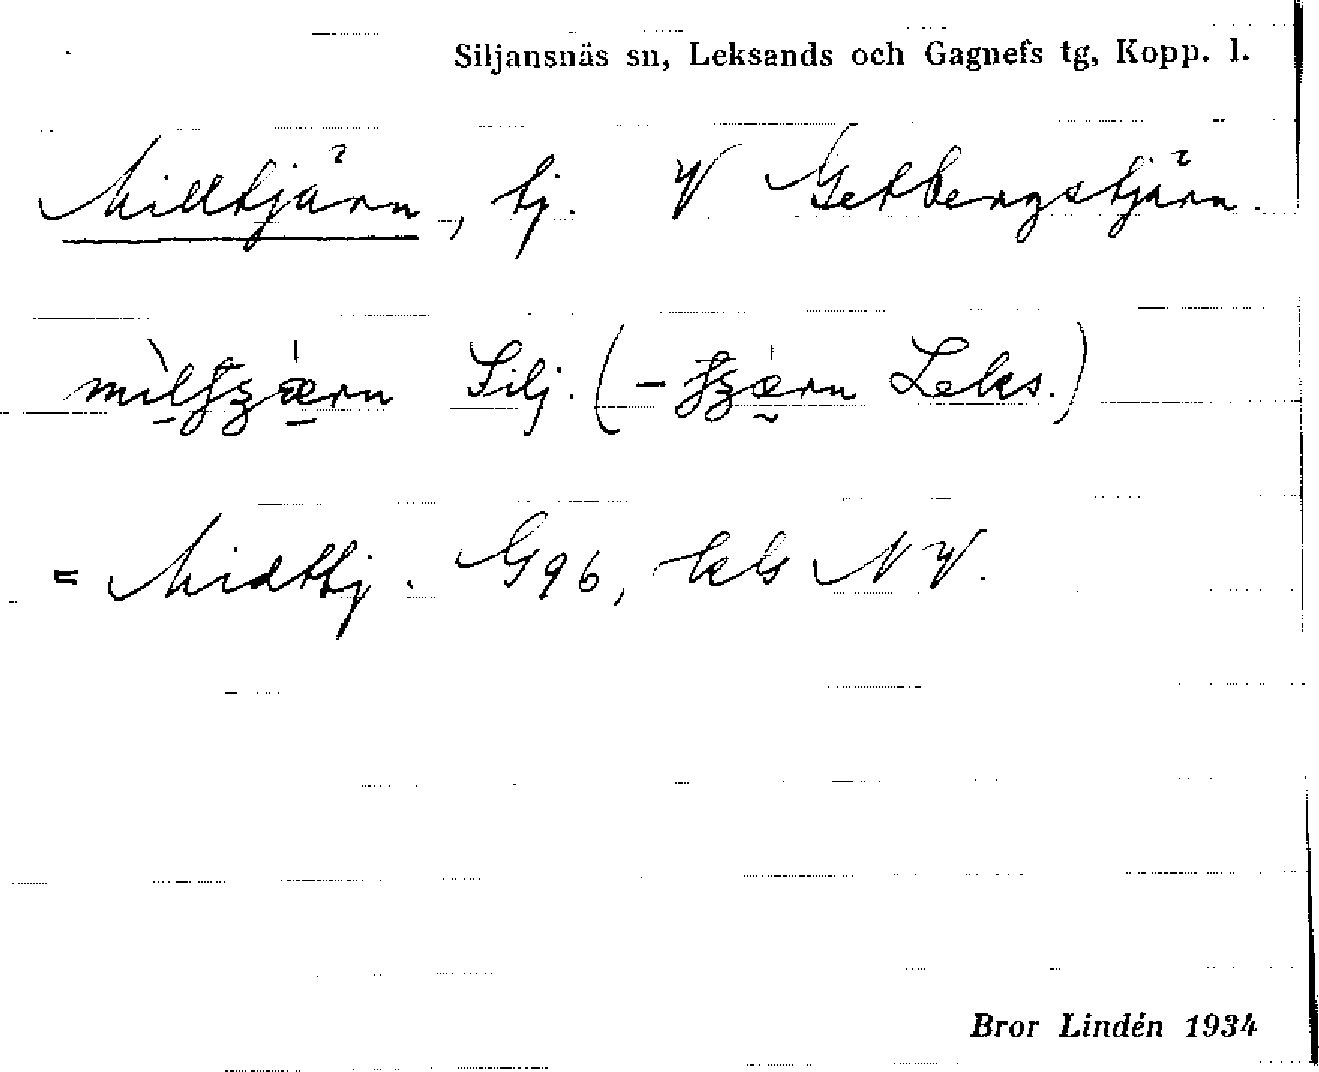 Siljansnäs sn, Leksands och Gagnefs tg, Kopp. l.
Milltjärn, tj. V Getbergstjärn.
Silj. (- Leks.)
= Midttj. G96, kbl NV.
Bror Lindén 1934